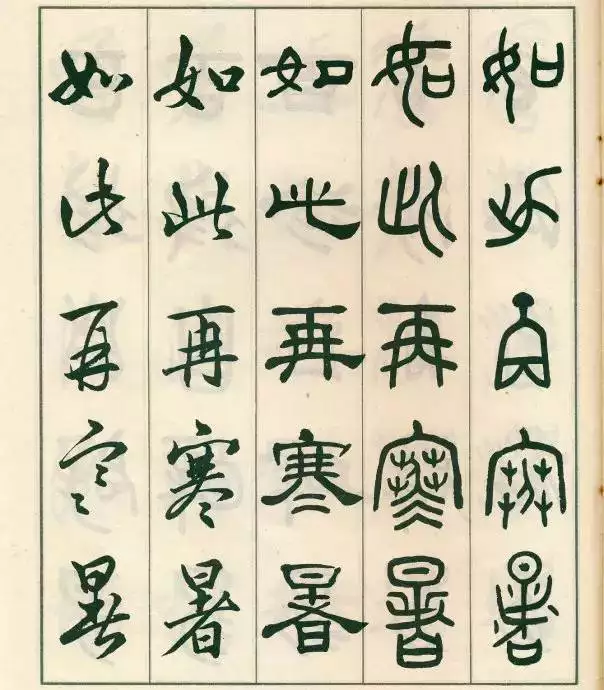 如此再寒暑
如此再寒暑
如此再寒暑
如此再寒暑
如此再寒暑